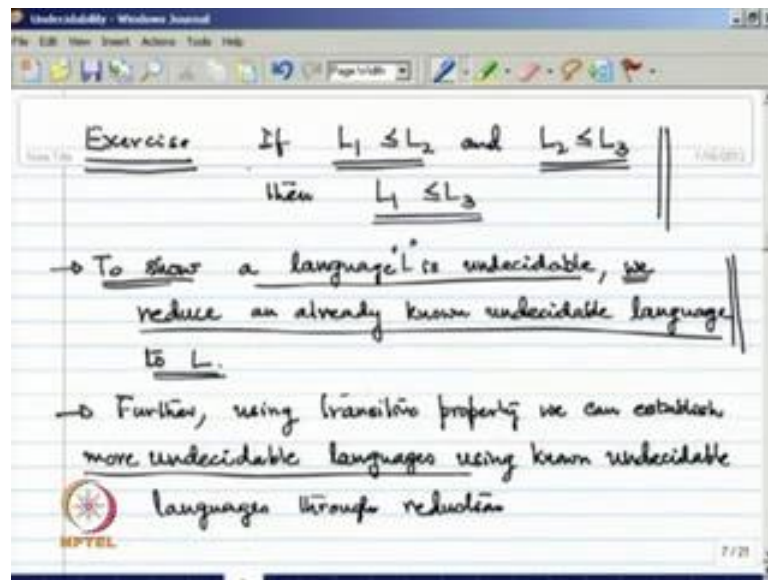 Undecidability - Windows Journal
File Edit View Insert Actions Tools Help
Page Width
Exercise If L₁ ≤ L₂ and L₂ ≤ L₃
Note Title
then L₁ ≤ L₃
→ To show a language "L" is undecidable, we
reduce an already known undecidable language
to L.
→ Further, using transitive property we can establish
more undecidable languages using known undecidable
languages through reduction
NPTEL
7/21